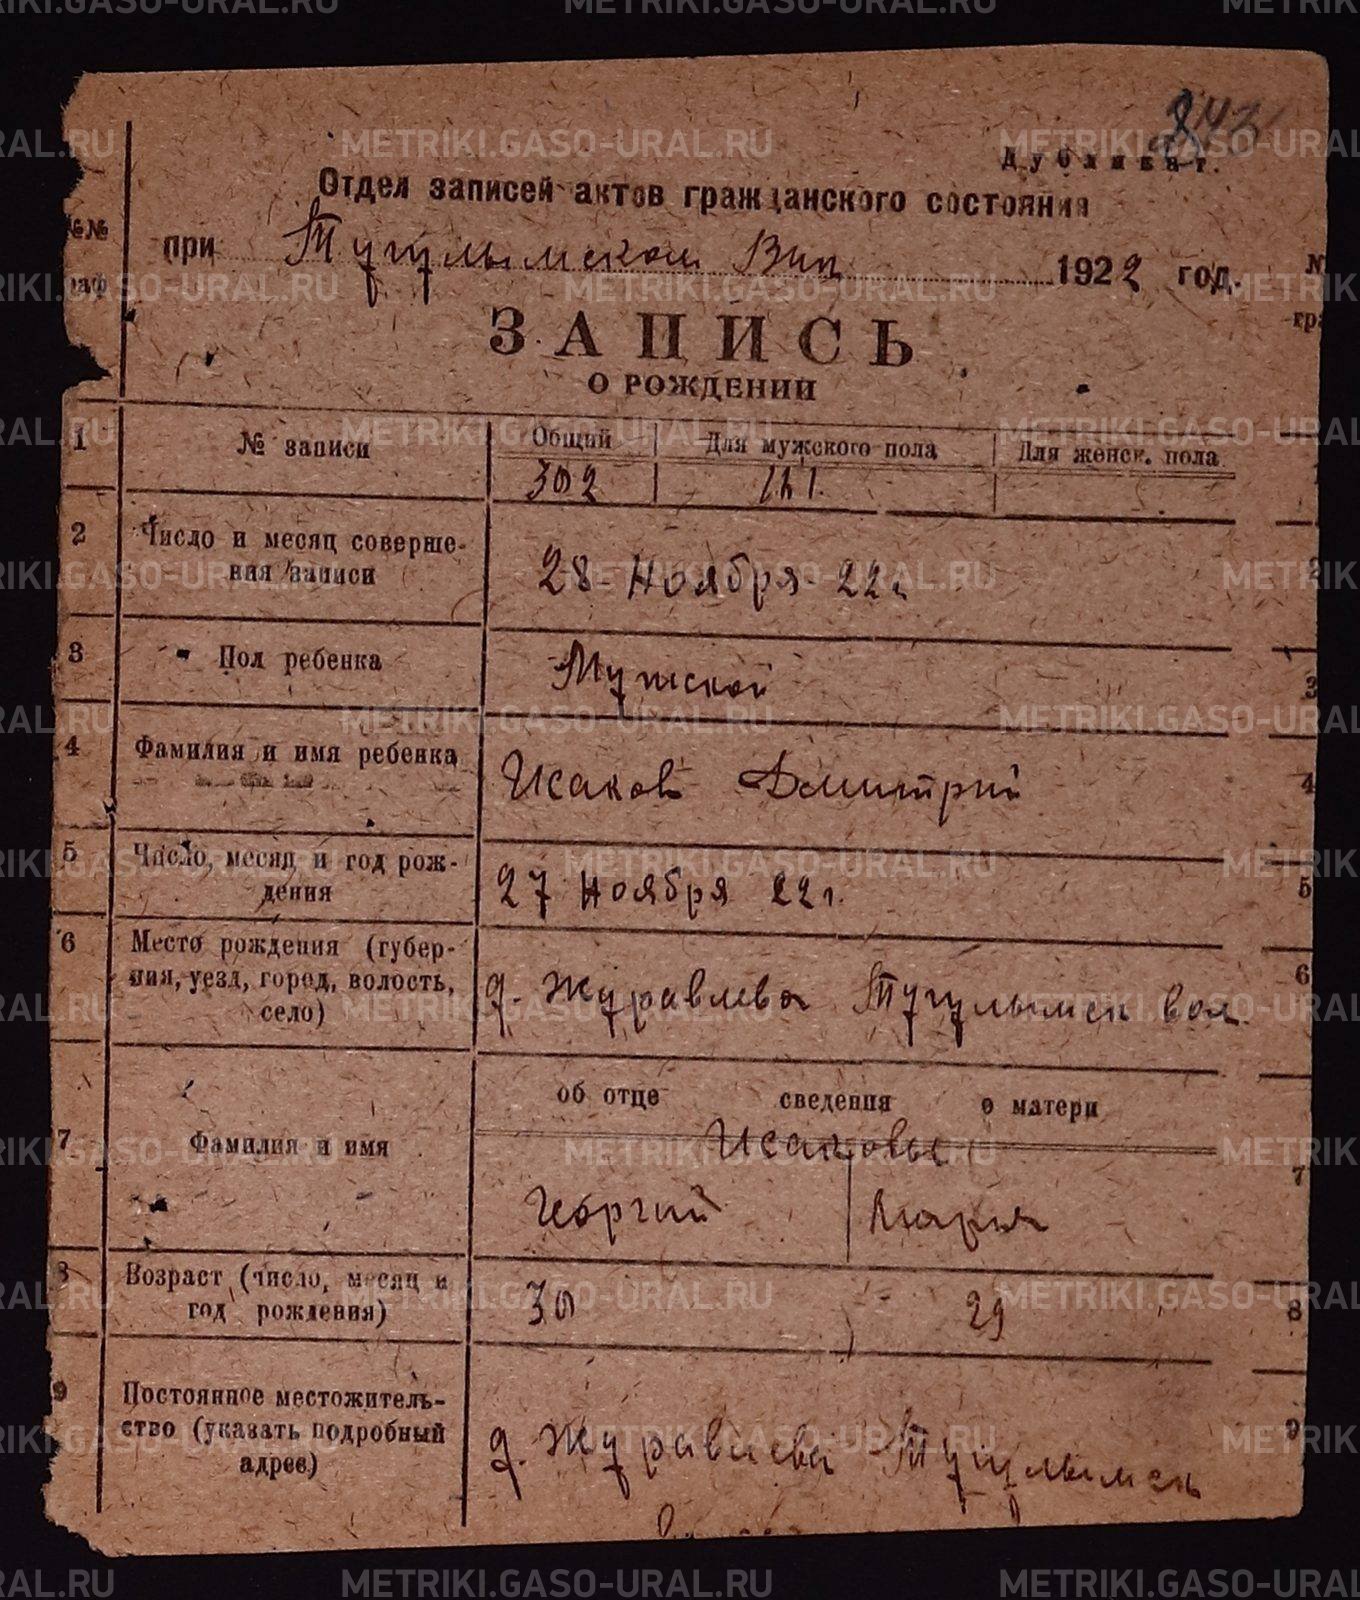 243
Дубликат.
Отдел записей актов гражданского состояния
при Тугулымском Вик 1922 год.
№№
раф
ЗАПИСЬ
О РОЖДЕНИИ
1 № записи Общий Для мужского пола Для женск. пола
302
2 Число и месяц соверше-
ния записи
28 Ноября 22 г
3 Пол ребенка Мужской 3
4 Фамилия и имя ребенка Исаков Дмитрий 4
5 Число, месяц и год рож-
дения
27 Ноября 22 г. 5
6 Место рождения (губер-
ния, уезд, город, волость,
село)
д. Журавлева Тугулымск вол. 6
об отце сведения о матери
7 Фамилия и имя Исаковы 7
Георгий Мария
8 Возраст (число, месяц и
год рождения)
30 29 8
9 Постоянное местожитель-
ство (указать подробный
адрес)
д. Журавлева Тугулымск 9
METRIKI.GASO-URAL.RU